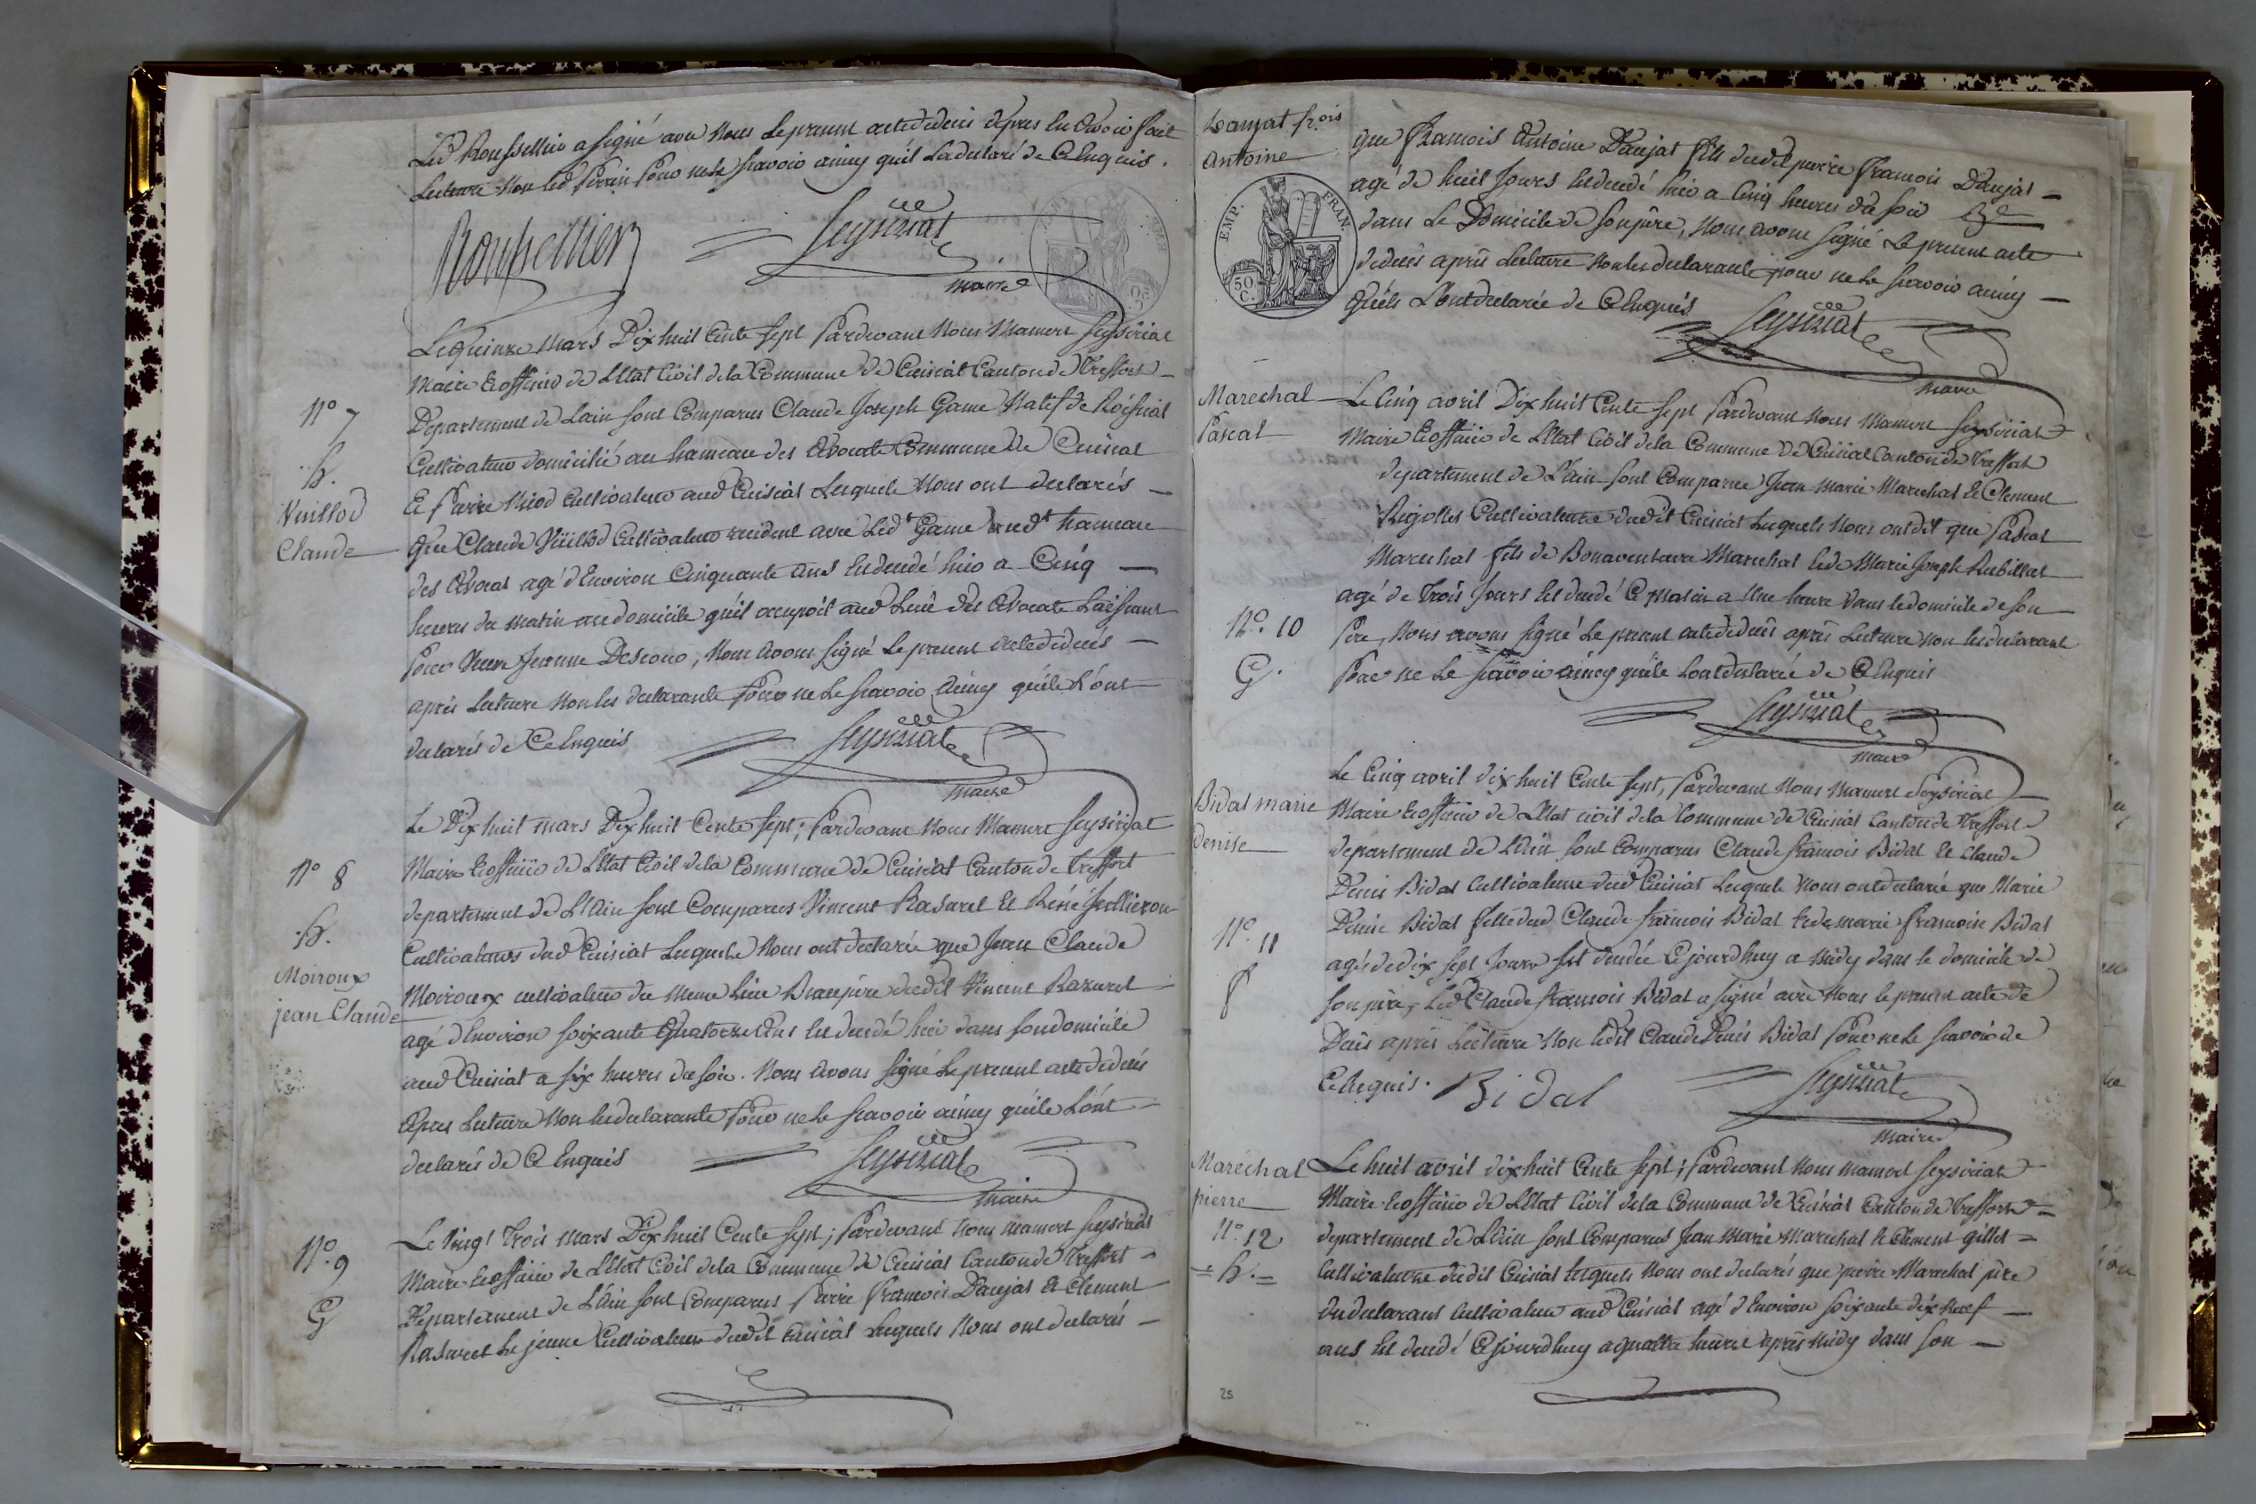 Led Roussellier a signé avec Nous Le present acte de deces apres En avoir fait
Lecture Non led Perrin pour ne le scavoir ainsy qu'il La declaré de Ce Enquis.
Roussellier
Seyssiriat
maire
Le quinze Mars Dix huit Cents Sept Pardevant Nous Mamert Seyssiriat
Maire Et officier de L'Etat Civil de la Commune de Cuisiat Canton de Treffort
Departement de Lain sont Comparus Claude Joseph Game Natif de
Cultivateur domicilié au hameau des Avocats Commune de Cuisiat
Et Pierre Niod Cultivateur aud Cuisiat Lesquels Nous ont declarés
N° 7
h.
Vuillod
Claude
Que Claude Vuillod Cultivateur resident avec Led.t Game aud.t hameau
des Avocat agé d'Environ Cinquante ans Est decedé hier a Cinq
heures du matin au domicile qu'il occupoit aud Lieu des Avocats Laissant
pour Veuve Jeanne, Nous avons signé Le present acte de deces
après Lecture Non les declarants pour ne Le scavoir Ainsy qu'ils L'ont
declarés de Ce Enquis
Seyssiriat
maire
Le Dix huit mars Dix huit Cents Sept; Pardevant Nous Mamert Seyssiriat
Maire Et officier de L'Etat Civil de la Commune de Cuisiat Canton de Treffort
departement de L'Ain sont Comparus Vincent Rasurel Et Réné Jullieron
Cultivateurs dud Cuisiat Lesquels Nous ont declarée que Jean Claude
Moiroux cultivateur du Meme Lieu Beaupère dudit Vincent Razurel
N° 8
h.
Moiroux
jean Claude
agé d'Environ soixante Quatorze Ans Est decedé hier dans son domicile
aud Cuisiat a six heures du soir. Nous avons signé Le present acte de decés
Apres Lecture Non les declarants pour ne le scavoir ainsy qu'ils L'ont
declarés de Ce Enquis
Seyssiriat
maire
Le Vingt Trois Mars Dix huit Cents Sept; Pardevant Nous Mamert Seyssiriat
Maire Et officier de L'Etat Civil de la Commune de Cuisiat Canton de Treffort
Departement de L'Ain sont Comparus Pierre François Daujat Et Clement
Rasurel Le jeune Cultivateurs dudit Cuisiat Lesquels Nous ont declarés
N° 9
G
Daujat f.çois
Antoine
EMP. FRAN.
50 C.
que François Antoine Daujat fils dudit pierre François Daujat
agé de huit Jours Est decedé hier a Cinq heures du soir
dans Le Domicile de son père, Nous avons signé Le present acte
de decès après Lecture Non les declarants pour ne Le scavoir ainsy
Qu'ils L'ont declarée de Ce Enquis
Seyssiriat
maire
Marechal
Pascal
Le Cinq avril Dix huit Cents Sept Pardevant Nous Mamert Seyssiriat
Maire Et officier de L'Etat Civil de la Commune de Cuisiat Canton de Treffort
departement de L'Ain sont Comparus Jean Marie Marechal Et Clement
Cultivateurs dudit Cuisiat Lesquels Nous ont dit que Pascal
Marechal fils de Bonaventure Marechal Et de Marie Joseph Rubillat
agé de Trois Jours Est decedé Ce Matin a Une heure dans le domicile de son
N°. 10
G.
Père, Nous avons signé Le present acte de decès après Lecture non les declarant
Pour ne Le scavoir ainsy qu'ils L'ont declarée de Ce Enquis
Seyssiriat
maire
Bidal marie
denise
Le Cinq avril dix huit Cents Sept, Pardevant Nous Mamert Seyssiriat
Maire Et officier de L'Etat civil de la Commune de Cuisiat Canton de Treffort
departement de L'Ain sont Comparus Claude françois Bidal Et Claude
Denis Bidal Cultivateurs dud Cuisiat Lesquels Nous ont declarée que Marie
Denise Bidal fille dud Claude françois Bidal Et de marie françoise Bidal
agée de dix sept Jours Est decedée Cejourdhuy a Midy dans le domicile de
N°. 11
f
son père, Led Claude françois Bidal a signé avec Nous le present acte de
Decès après Lecture Non ledit Claude Denis Bidal Pour ne Le scavoir de
Ce Enquis.
Bidal
Seyssiriat
maire
Maréchal
pierre
N°. 12
= h. =
Le huit avril dix huit Cents Sept; Pardevant Nous Mamert Seyssiriat
Maire Et officier de L'Etat Civil de la Commune de Cuisiat Canton de Treffort
departement de L'Ain sont Comparus Jean Marie Marechal Et Clement Gillet
Cultivateurs dudit Cuisiat Lesquels Nous ont declarés que pierre Marechal père
du declarant Cultivateur aud Cuisiat agé d'Environ soixante dix Neuf
ans Est decedé Cejourdhuy a quattre heures après Midy dans son
25